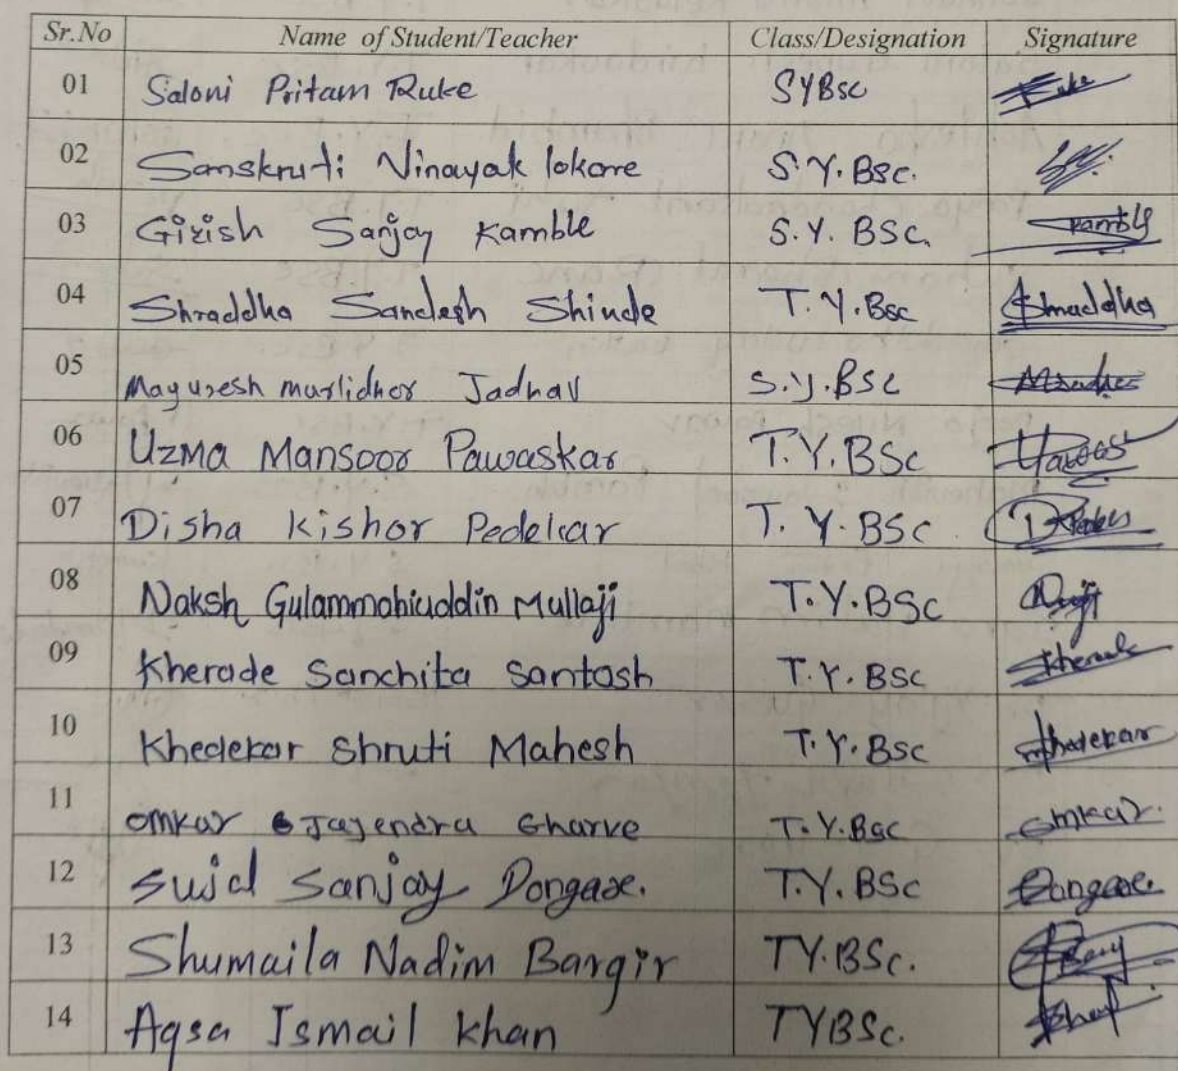 Sr.No Name of Student/Teacher Class/Designation Signature
01 Saloni Pritam Ruke SYBSc Ruke
02 Sanskruti Vinayak lokare S.Y.BSc.
03 Girish Sanjay Kamble S.Y. BSc. Kamble
04 Shraddha Sandesh Shinde T.Y.BSc Shraddha
05 Mayuresh murlidhar Jadhav S.Y.BSc
06 Uzma Mansoor Pawaskar T.Y.BSc
07 Disha Kishor Pedekar T.Y.BSc
08 Naksh Gulammohiuddin Mullaji T.Y.BSc
09 Kherade Sanchita Santosh T.Y.BSc Kherade
10 Khedekar Shruti Mahesh T.Y.BSc Khedekar
11 omkar Jayendra Gharve T.Y.BSc omkar.
12 Sujal Sanjay Dongare. T.Y.BSc Dongare.
13 Shumaila Nadim Bargir TY.BSc.
14 Aqsa Ismail Khan TYBSc.